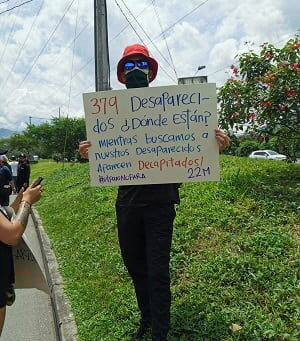 379 DESAPARECI-
DOS ¿DÓNDE ESTÁN?
MIENTRAS BUSCAMOS A
NUESTROS DESAPARECIDOS
APARECEN DECAPITADOS!
22M